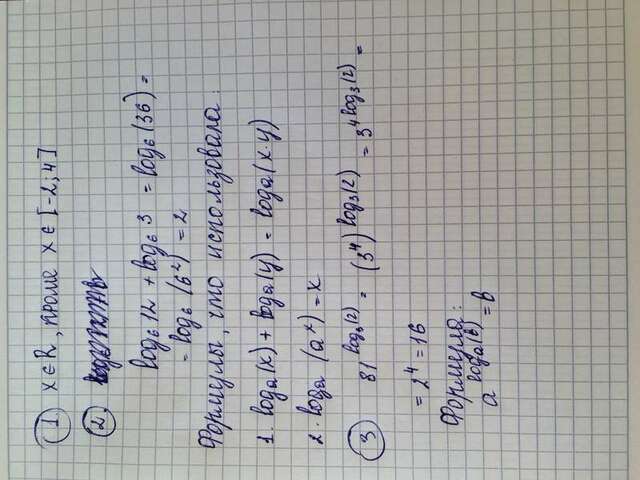 ① x ∈ R, кроме x ∈ [-2; 4]
②
log₆ 12 + log₆ 3 = log₆ (36) =
= log₆ (6²) = 2
Формулы, что использовала :
1. logₐ(x) + logₐ(y) = logₐ(x·y)
2. logₐ (aˣ) = x
③ 81^log₃(2) = (3⁴)^log₃(2) = 3^4log₃(2) =
= 2⁴ = 16
Формула :
a^logₐ(b) = b